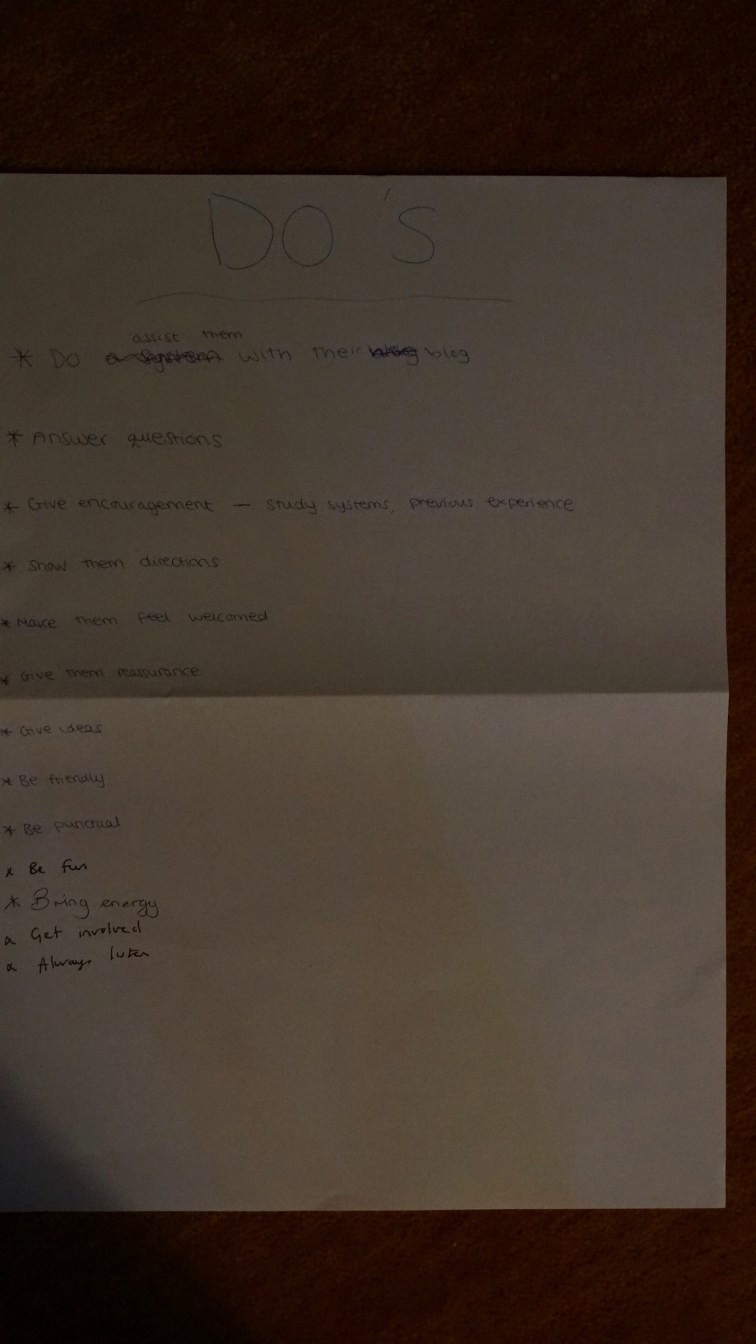 DO'S
assist them
* Do with their blog
* Answer questions
* Give encouragement — study systems, previous experience
* Show them directions
* Make them feel welcomed
* Give them reassurance
* Give ideas
* Be friendly
* Be punctual
* Be fun
* Bring energy
* Get involved
* Always listen